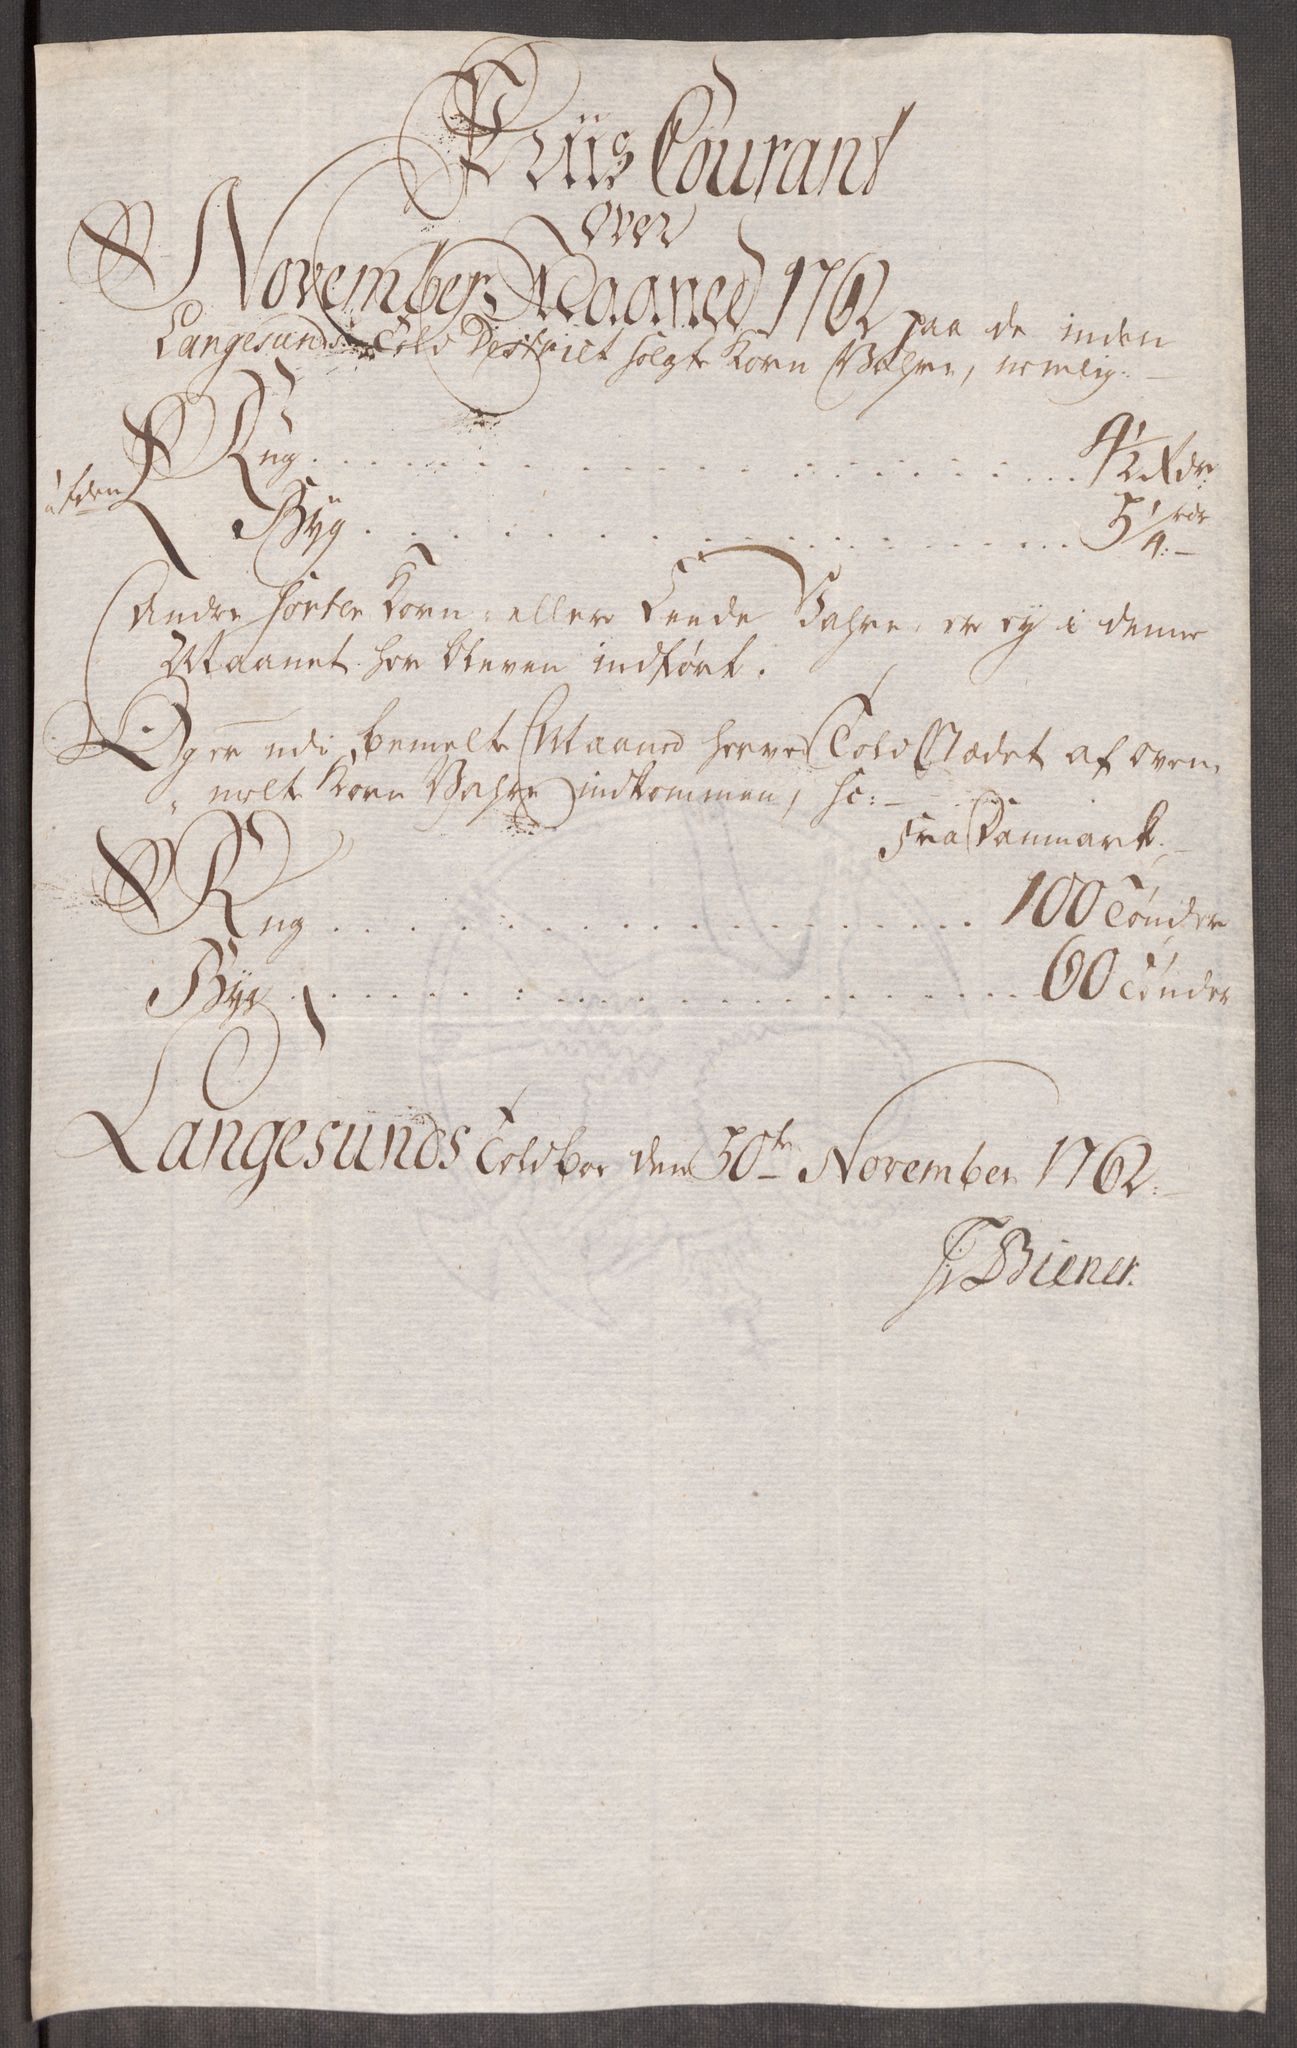 Priis Courant
over
November Maaned 1762 paa de inden
Langesunds Told District solgte Korn Vahre, nemlig:
Rug . . . . 4 1/2 Rdr
Byg . . . . 5 1/4 rdr
Andre sorter Korn eller Feede Vahre, er ey i denne
Maanet her bleven indført.
Og er udi bemelte Maaned herved Told Stædet af oven
melte Korn Vahre indkommen, sc:
Fra Danmark.
Rug . . . . 100 Tønder
Byg . . . . 60 Tønder
Langesunds Toldboe den 30te November 1762.
Biener